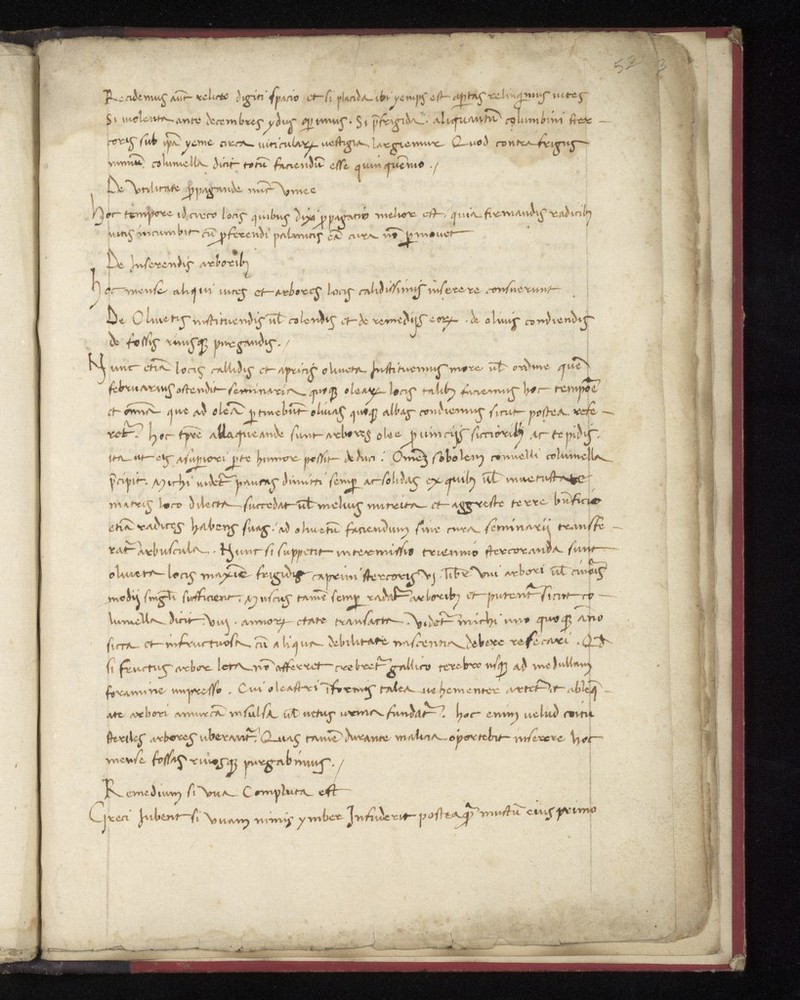 52 3
Recidemus aūt relicto digiti spacio et si placida ibi yemps est apertas relinquimus uites
Si uiolenta ante decembres ydus operimus. Si p̄frigida. aliquantū columbini ster-
coris sub ip̄a yeme circa uiticularꝝ uestigia largiemur Quod contra frigus
nimiū columella dicit totū faciendū esse quinquēnio ./
De Vtilitate p̄pagande nūc Vinee
Hoc tempore idcirco locis quibus dixi ꝓpagatio melior est. quia firmandis radicibꝫ
uitis incumbit cū ꝓferendi palmitis eā cura nō ꝑmouet
De Inserendis arboribꝫ
hoc mense aliqui uites et arbores locis calidissimis inserere consuerunt
De Oliuetis instituendis ul̄ colendis et de remedijs eorꝝ . de oliuis condiendis
de fossis riuisqꝫ purgandis ./
Nunc etiā locis callidis et apricis oliueta Instituemus more ul̄ ordine quē
februarius ostendit seminaria quoqꝫ olearꝝ locis talibꝫ faciemus hoc tempōe
et omīa que ad oleā ꝑtinebūt oliuas quoqꝫ albas condiemus sicut postea refe-
ret̄. hoc tp̄re ablaqueande sunt arbores olee ꝓuincijs siccioribꝫ ac tepidis.
ita ut eis a suꝑiori ꝑte humor possit deduci. Omēꝫ sobolem conuelli columella
p̄cipit. Michi uidet̄ paucas dimitti semꝑ ac solidas ex quibꝫ ul̄ inuetustate
matris loco dilecta succedat ul̄ melius nutrita et aggeste terre bn̄ficio
etiā radices habens suas. ad oliuetū faciendum sine cura seminarii transfe-
rat̄ arbuscula. Nunc si suppetit intermissio triennio stercoranda sunt
oliueta locis maxīe frigidis caprini stercoris vi . lib̄e vni arbori ul̄ cineris
modij singl̄i sufficient. Muscus tamē semꝑ radat̄ arboribꝫ et putent̄ sicut co-
lumella dicit viij . annorꝝ etate transacta. Videt̄ michi uno quoqꝫ āno
sicca et infructuosa cū aliqua debilitate nascentia debere resecari . Qđ
si fructus arbor leta nō afferret crebret̄ gallico terebro usqꝫ ad medullam
foramine impresso. Cui oleastri īformis talea uehementer artet̄ et ableq̄-
ate arbori amurca insulsa ul̄ uetus urina fundat̄. hoc enim uelud coitu
steriles arbores uberant̄. Quas tamē durante malicia oportebit inserere hoc
mense fossas riuosqꝫ purgabimus ./
Remedium si Vua Compluta est
Greci Iubent si Vuam nimis ymber Infuderit posteaqꝫ mustū eius primo